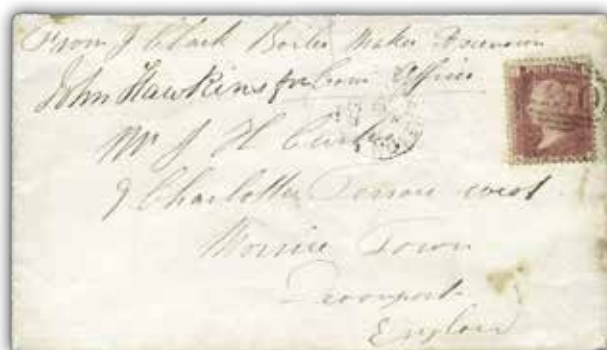 From J Clark Boiler Maker Ascension
John Hawkins for Com Officer
Mr J H
9 Charlotte Terrace west
Morice Town
Devonport
England